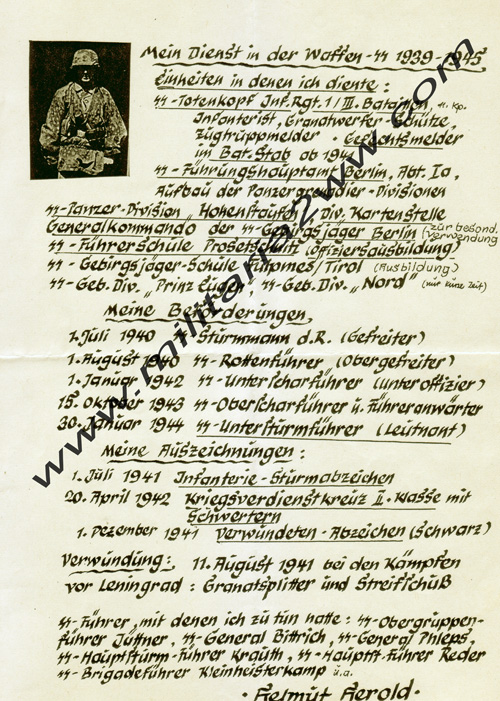 Mein Dienst in der Waffen-SS 1939-1945
Einheiten in denen ich diente:
SS-Totenkopf Inf.Rgt.1/III.Bataillon, 11.Kp.
Infanterist, Granatwerfer-Schütze,
Zugtruppmelder. Gefechtsmelder
im Bat.Stab ab 194
SS-Führungshauptamt Berlin, Abt. Ia,
Aufbau der Panzergrenadier-Divisionen
SS-Panzer-Division "Hohenstaufen" Div. Kartenstelle
Generalkommando der SS-Gebirgsjäger Berlin (zur besond. Verwendung)
SS-Führerschule Prosetschnitz (Offiziersausbildung)
SS-Gebirgsjäger-Schule Fulpmes/Tirol (Ausbildung)
SS-Geb. Div. "Prinz Eugen", SS-Geb. Div. "Nord" (nur kurze Zeit)
Meine Beförderungen
1. Juli 1940 SS-Sturmmann d.R. (Gefreiter)
1. August 1940 SS-Rottenführer (Obergefreiter)
1. Januar 1942 SS-Unterscharführer (Unteroffizier)
15. Oktober 1943 SS-Oberscharführer u. Führeranwärter
30. Januar 1944 SS-Untersturmführer (Leutnant)
Meine Auszeichnungen:
1. Juli 1941 Infanterie-Sturmabzeichen
20. April 1942 Kriegsverdienstkreuz II. Klasse mit
Schwertern
1. Dezember 1941 Verwundeten-Abzeichen (Schwarz)
Verwundung: 11. August 1941 bei den Kämpfen
vor Leningrad: Granatsplitter und Streifschuß
SS-Führer, mit denen ich zu tun hatte: SS-Obergruppen-
führer Jüttner, SS-General Bittrich, SS-General Phleps,
SS-Hauptsturm-Führer Krauth, SS-Hauptst.-Führer Reder
SS-Brigadeführer Kleinheisterkamp u.a.
·Helmut Herold·
www.militaria2ww.com